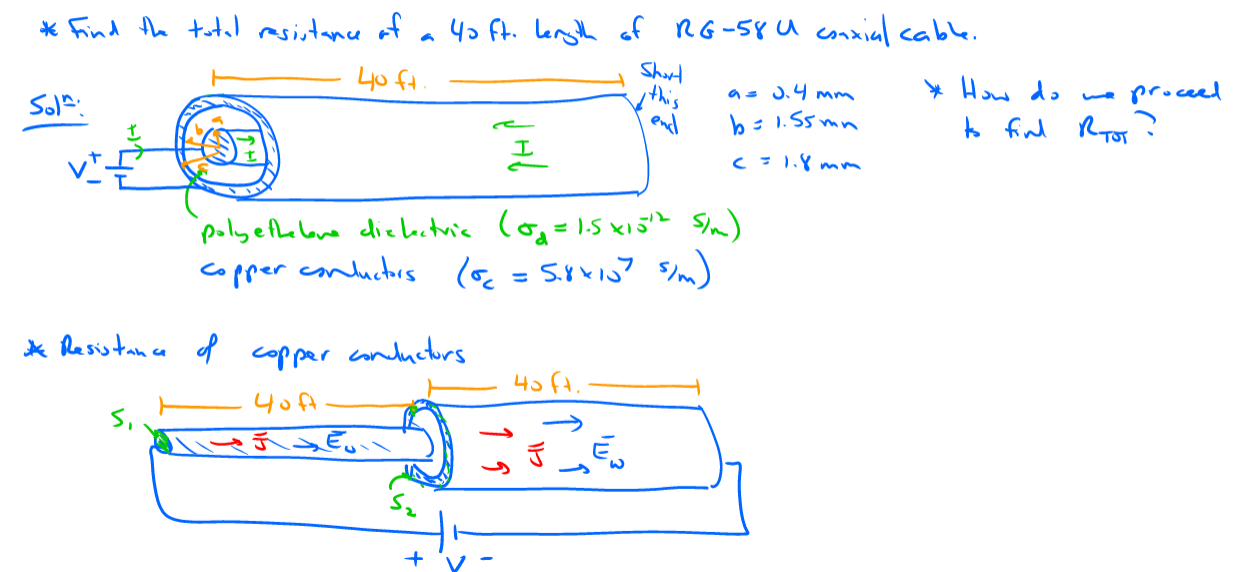 * Find the total resistance of a 40 ft. length of RG-58 U coaxial cable.
40 ft.
Short this end
Solⁿ:
a = 0.4 mm
b = 1.55 mm
c = 1.8 mm
* How do we proceed
to find R_TOT?
I
b
a
I
c
V
+
-
I
polyethelene dielectric (σ_d = 1.5 x 10^-12 S/m)
copper conductors (σ_c = 5.8 x 10^7 S/m)
* Resistance of copper conductors
40 ft.
40 ft
S₁
J̄
Ē_w
J̄
Ē_w
S₂
+ V -